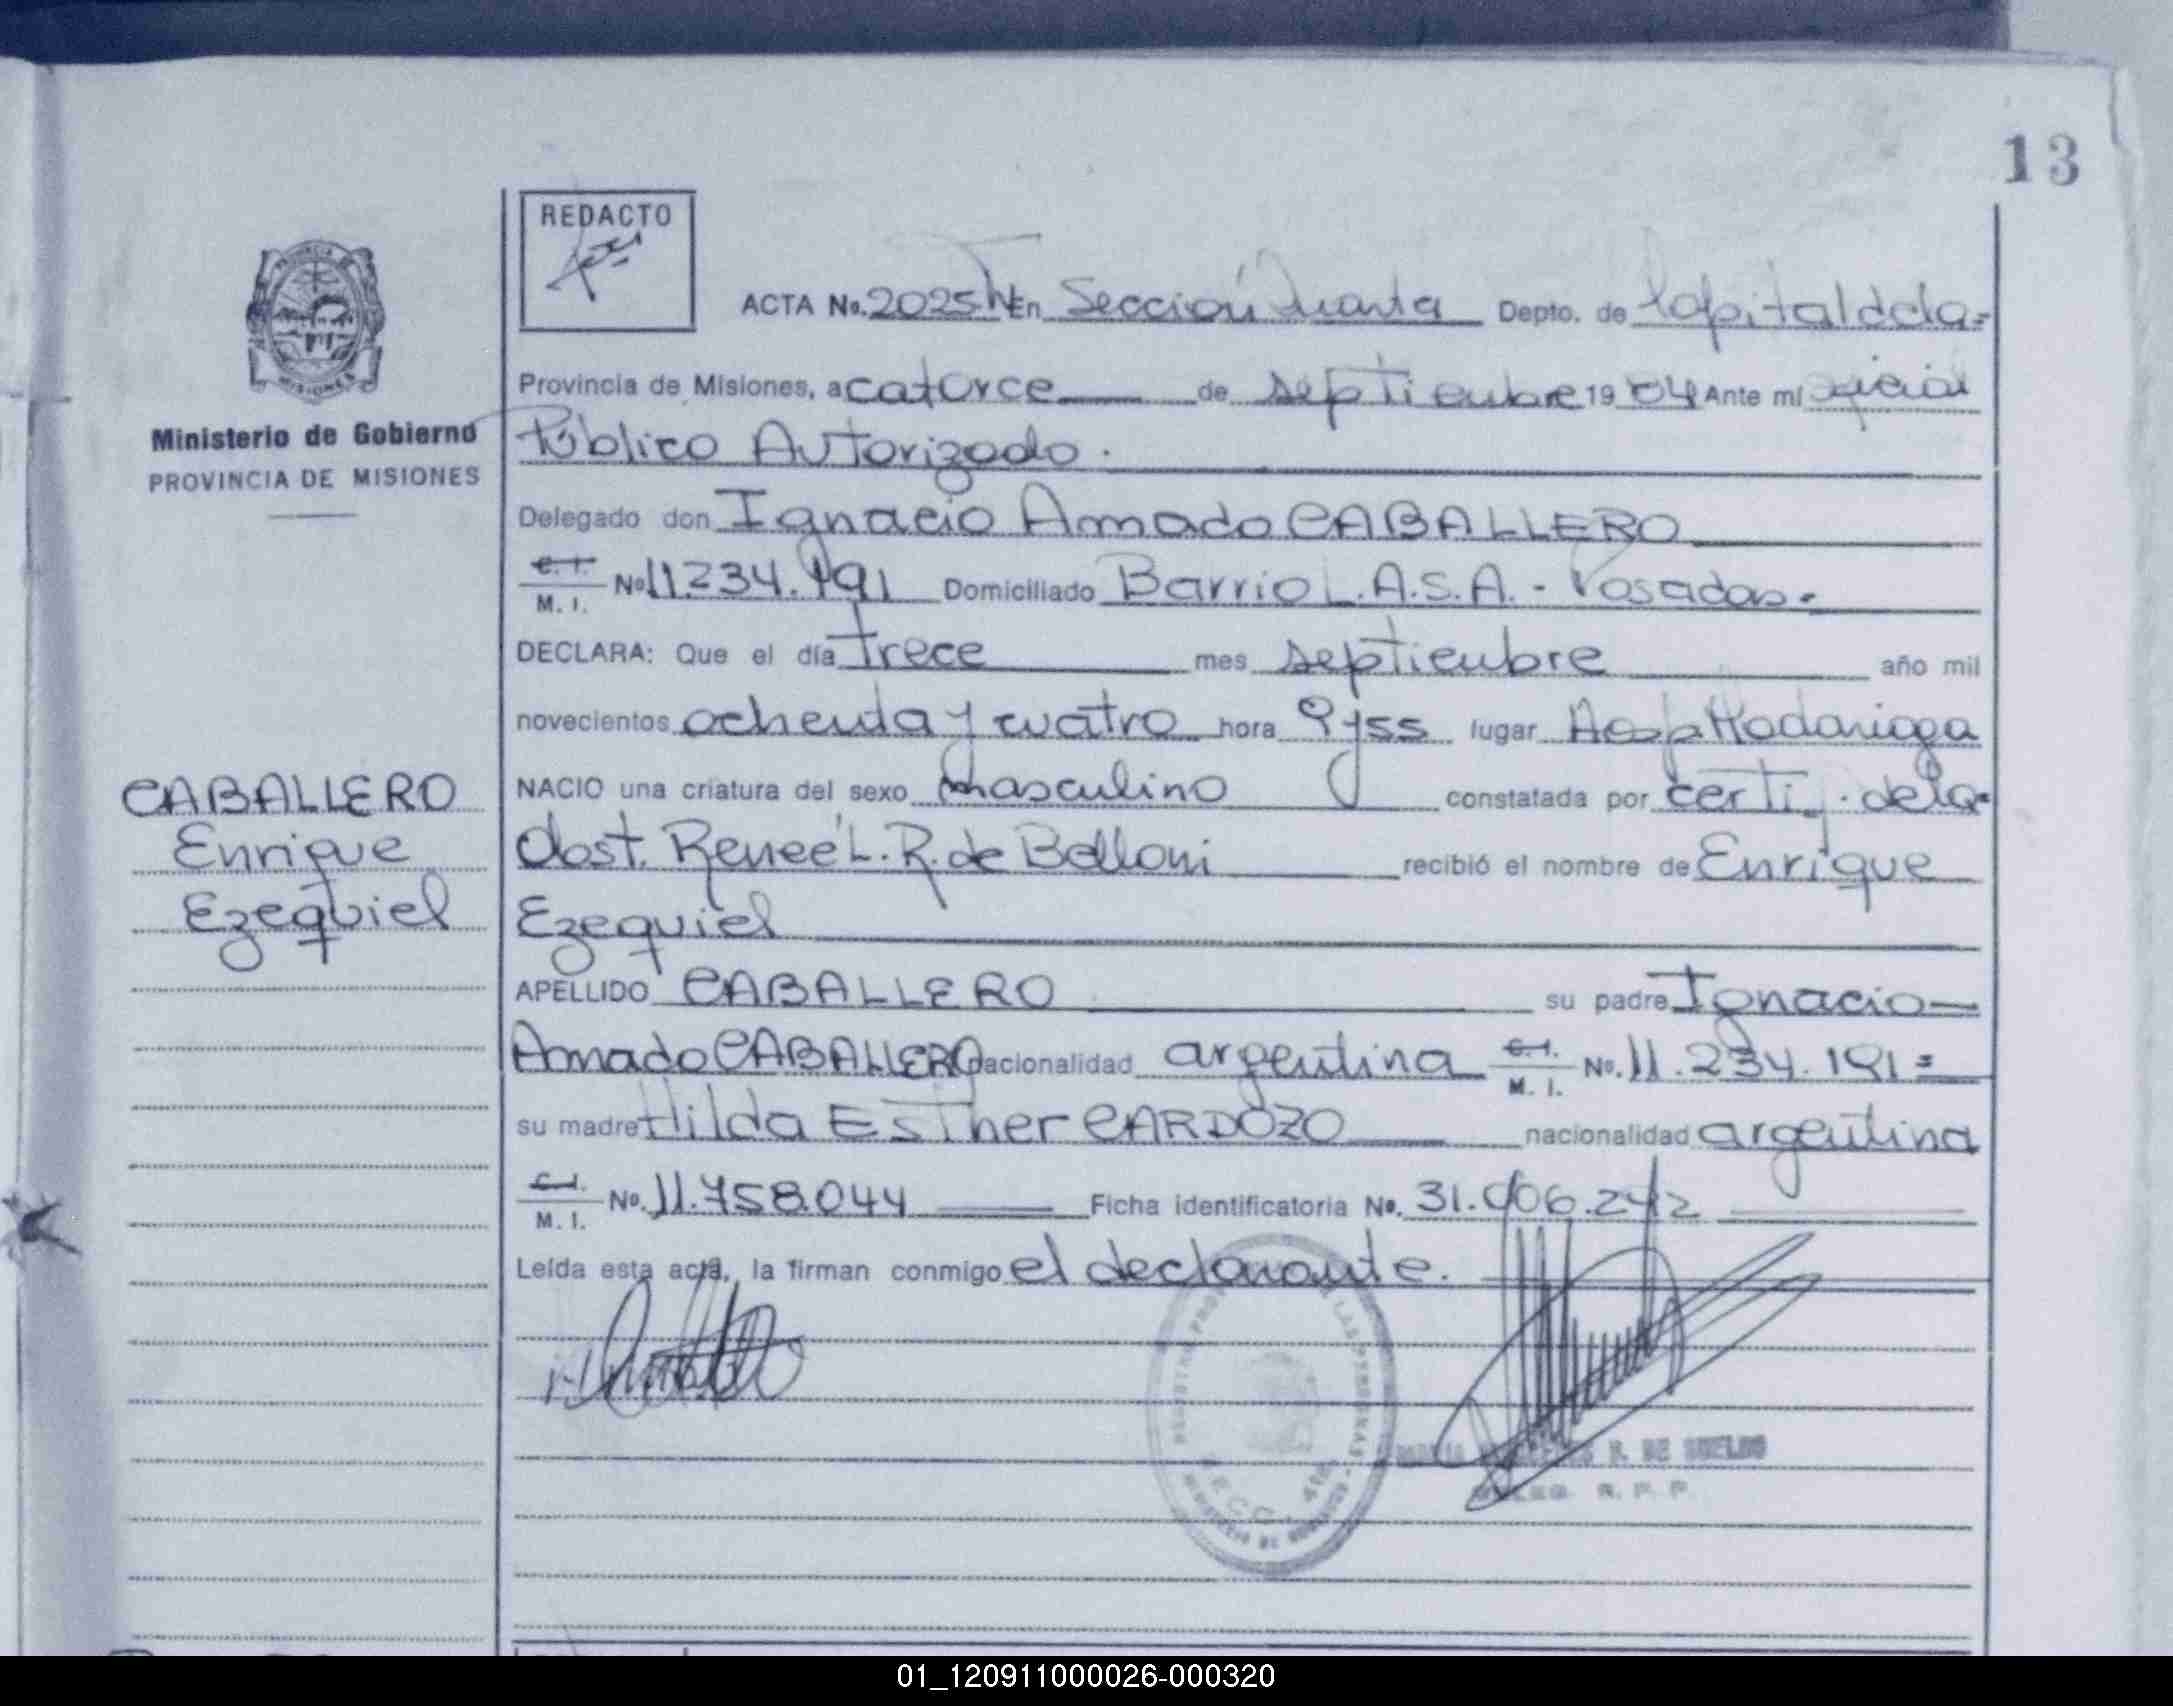 13
REDACTO
ACTA No. 2025 En Sección Cuarta Depto. de Capital de la-
Provincia de Misiones, a catorce de septiembre 19 84 Ante mí Oficial
Ministerio de Gobierno
PROVINCIA DE MISIONES
Público Autorizado.
Delegado don Ignacio Amado CABALLERO
C. I. M. I. No 11.234.191 Domiciliado Barrio L.A.S.A. - Posadas.
DECLARA: Que el día trece mes septiembre año mil
novecientos ochenta y cuatro hora 9 y 55 lugar Hosp Madariaga
CABALLERO
Enrique
Ezequiel
NACIO una criatura del sexo masculino constatada por certif. de la
Obst. Reneé L. R. de Belloni recibió el nombre de Enrique
Ezequiel
APELLIDO CABALLERO su padre Ignacio
Amado CABALLERO nacionalidad argentina C. I. M. I. No. 11.234.191=
su madre Hilda Esther CARDOZO nacionalidad argentina
C. I. M. I. No. 11.758.044 Ficha identificatoria No. 31.006.242
Leída esta acta, la firman conmigo el declarante.
R. DE SUELDO
R. P. P.
01_120911000026-000320